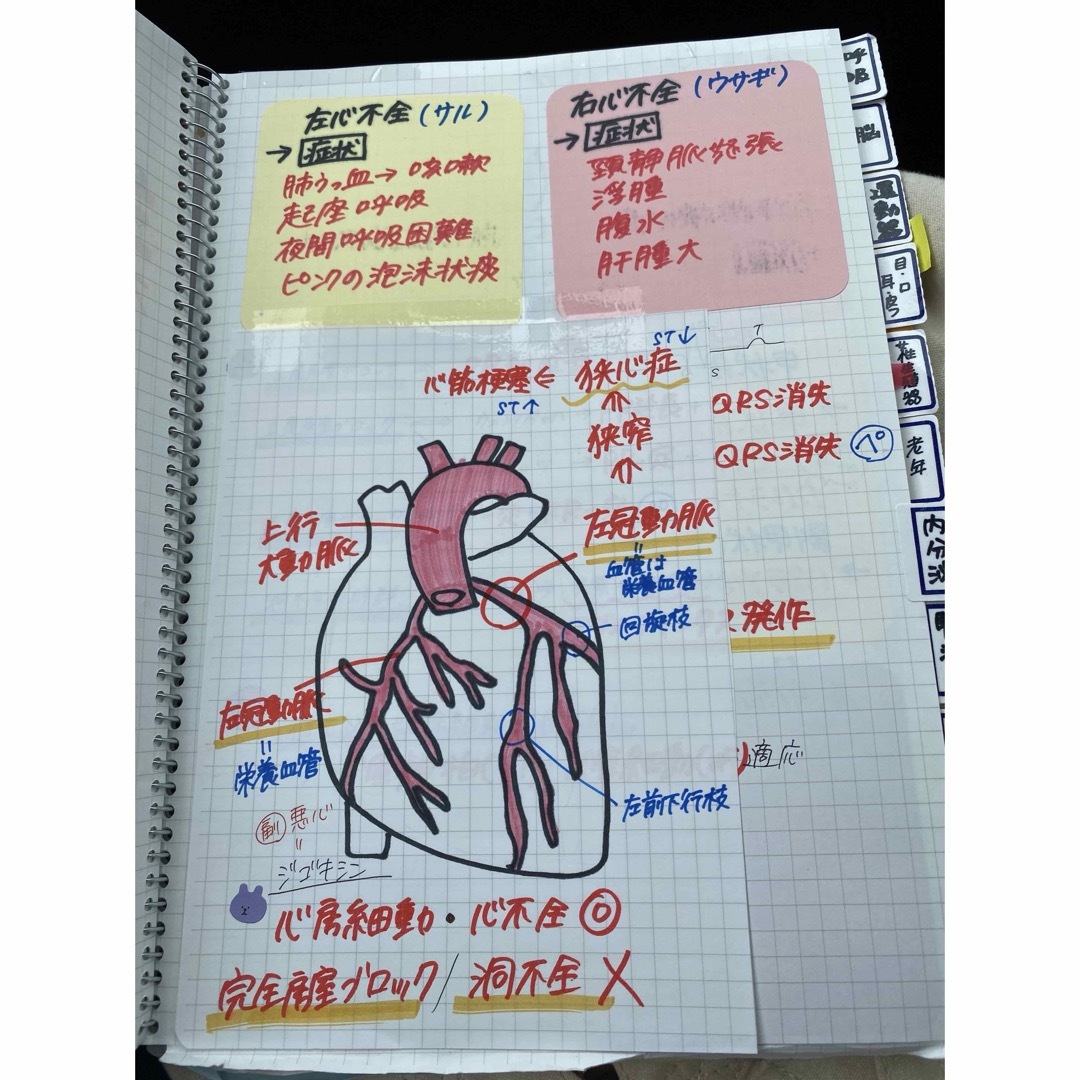 左心不全(サル)
→症状
肺うっ血→咳嗽
起座呼吸
夜間呼吸困難
ピンクの泡沫状痰
右心不全(ウサギ)
→症状
頸静脈怒張
浮腫
腹水
肝腫大
ST↓
心筋梗塞⇐狭心症
ST↑
⇑
狭窄
⇑
左冠動脈
=
血管は
栄養血管
回旋枝
上行
大動脈
左冠動脈
=
栄養血管
左前下行枝
副 悪心
=
ジゴキシン
心房細動・心不全◎
完全房室ブロック/洞不全✕
T
S
QRS消失
QRS消失 ペ
発作
適応
呼吸
脳
運動器
目・口
耳・皮フ
老年
内分泌